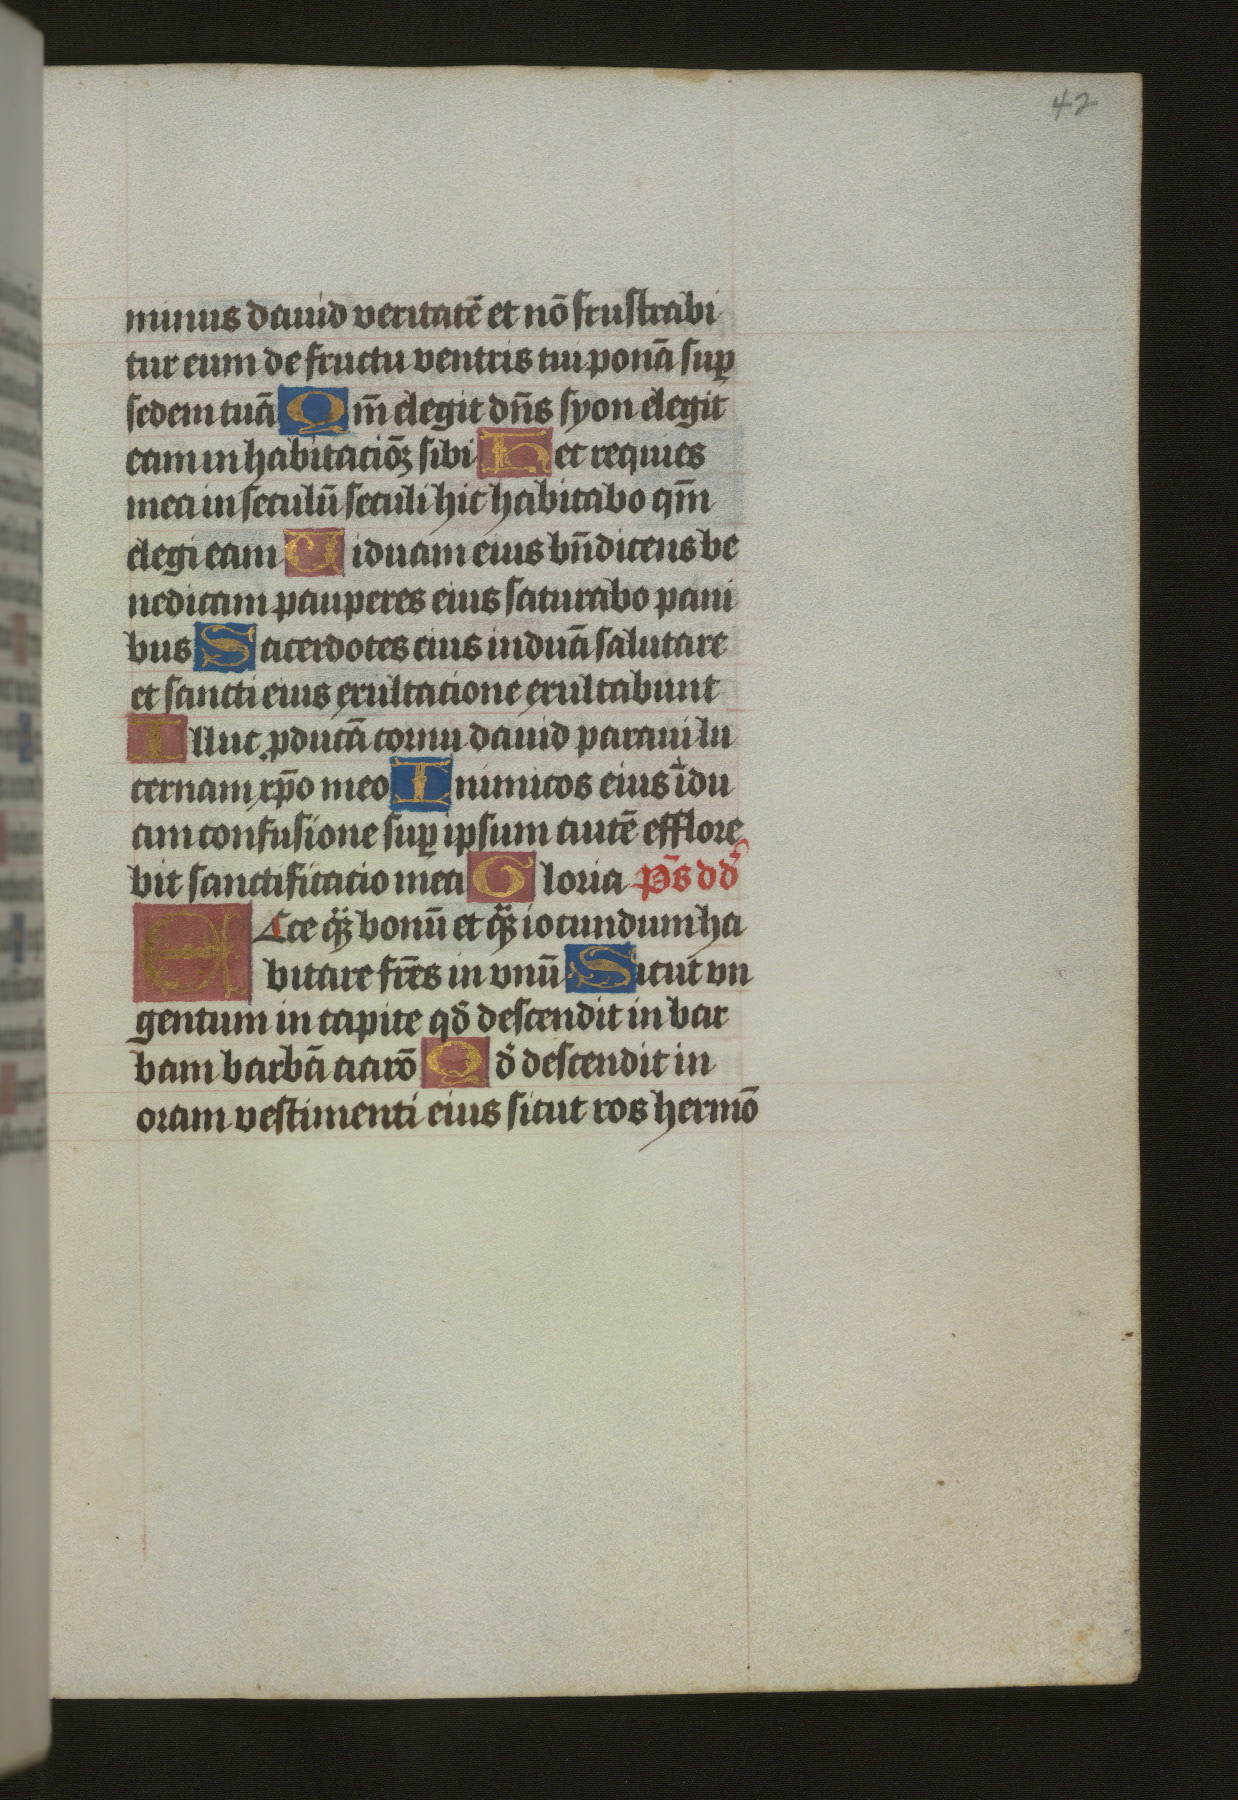 42
minus dauid veritatē et nō frustrabi
tur eum de fructu ventris tui ponā suꝑ
sedem tuā Qm̄ elegit dn̄s syon elegit
eam in habitaciōꝫ sibi Hec requies
mea in seculū seculi hic habitabo qm̄
elegi eam Uiduam eius bn̄dicens be
nedicam pauperes eius saturabo pani
bus Sacerdotes eius induā salutare
et sancti eius exultacione exultabunt
Illuc ꝓducā cornu dauid paraui lu
cernam xp̄o meo Inimicos eius īdu
am confusione suꝑ ipsum autē efflore
bit sanctificacio mea Gloria p̄s dd̄
Ecce qͣꝫ bonū et qͣꝫ iocundum ha
bitare fr̄es in vnū Sicut vn
gentum in capite qd̄ descendit in bar
bam barbā aarō Qd̄ descendit in
oram vestimenti eius sicut ros hermō